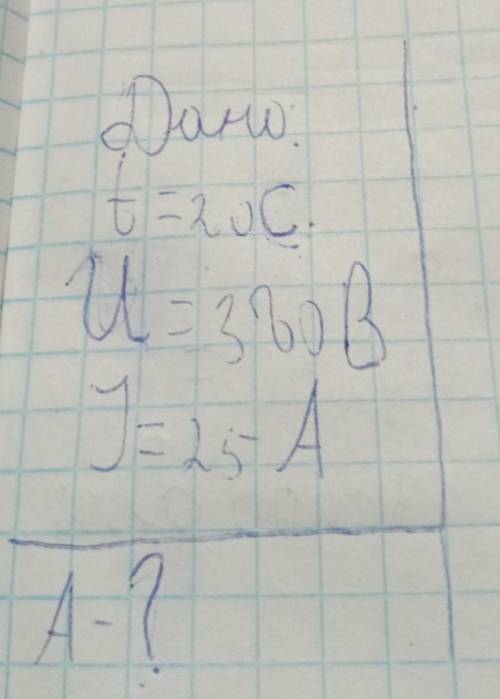 Дано:
t = 20 С.
U = 380 В
J = 25 А
A - ?